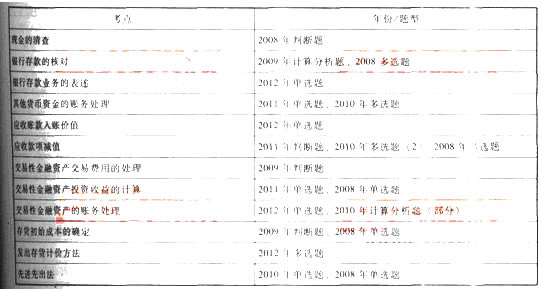 考点 年份/题型
现金的清查 2008年判断题
银行存款的核对 2009年计算分析题、2008多选题
银行存款业务的表述 2012年单选题
其他货币资金的账务处理 2011年单选题、2010年多选题
应收账款入账价值 2012年单选题
应收款项减值 2011年判断题、2010年多选题(2 2008年 选题
交易性金融资产交易费用的处理 2009年判断题
交易性金融资产投资收益的计算 2011年单选题、2008年单选题
交易性金融资产的账务处理 2012年单选题、2010年计算分析题(部分)
存货初始成本的确定 2009年判断题、2008年单选题
发出存货计价方法 2012年多选题
先进先出法 2010年单选题、2008年单选题